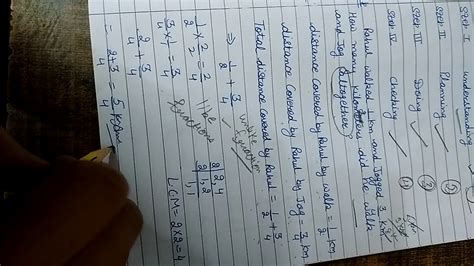 Step I Understanding
Step II Planning (5)
Step III Doing (2)
Step IV Checking (1)
Rahul walked 1/2 km and Jogged 3/4 kg
How many kilometers did he walk
and Jog altogether?
distance Covered by Rahul by walk = 1/2 km
distance Covered by Rahul by Jog = 3/4 km
Total distance Covered by Rahul = 1/2 + 3/4
⇒ 1/2 + 3/4 make equation
1/2 × 2/2 = 2/4 like
3/4 × 1/1 = 3/4 fractions
2 | 2, 4
2 | 1, 2
1, 1
LCM = 2×2 = 4
2/4 + 3/4
= 2+3/4 = 5/4 Kgms